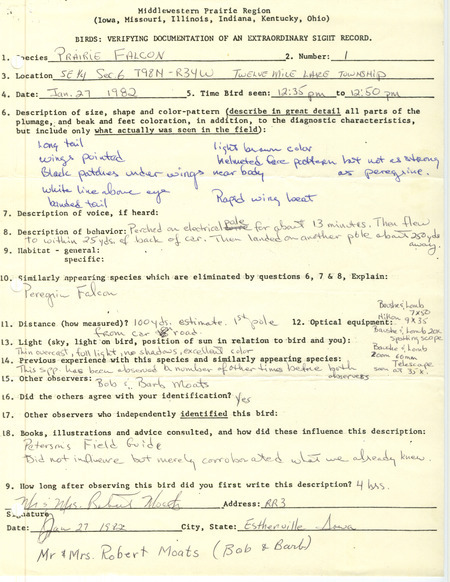 Middlewestern Prairie Region
(Iowa, Missouri, Illinois, Indiana, Kentucky, Ohio)
BIRDS: VERIFYING DOCUMENTATION OF AN EXTRAORDINARY SIGHT RECORD.
1. Species PRAIRIE FALCON 2. Number: 1
3. Location SE 1/4 Sec. 6 T98N-R34W TWELVE MILE LAKE TOWNSHIP
4. Date: Jan. 27 1982 5. Time Bird seen: 12:35 pm to 12:50 pm
6. Description of size, shape and color-pattern (describe in great detail all parts of
the plumage, and beak and feet coloration, in addition, to the diagnostic characteristics,
but include only what actually was seen in the field):
Long tail light brown color
wings pointed helmeted face pattern but not as strong
Black patches under wings near body as peregrine.
white line above eye
banded tail Rapid wing beat
7. Description of voice, if heard:
8. Description of behavior: Perched on electrical pole for about 13 minutes. Then flew
to within 25 yds. of back of car. Then landed on another pole about 250 yds
away.
9. Habitat - general:
specific:
10. Similarly appearing species which are eliminated by questions 6, 7 & 8, Explain:
Peregrin Falcon
11. Distance (how measured)? 100 yds. estimate. 1st pole 12. Optical equipment:
from car & road
Bausch & Lomb
7x50
Nikon 9x35
Bausch & Lomb 20x
spotting scope
Bausche & Lomb
Zoom 60mm
Telescope
13. Light (sky, light on bird, position of sun in relation to bird and you):
Thin overcast, full light, no shadows, excellent color
14. Previous experience with this species and similarly appearing species:
This spp has been observed a number of other times before both
observers
15. Other observers: Bob & Barb Moats
16. Did the others agree with your identification? Yes
17. Other observers who independently identified this bird:
18. Books, illustrations and advice consulted, and how did these influence this description:
Peterson's Field Guide
Did not influence but merely corroborated what we already knew.
9. How long after observing this bird did you first write this description? 4 hrs.
Mr & Mrs. Robert Moats Address: RR3
Signature
Date: Jan 27 1982 City, State: Estherville Iowa
Mr & Mrs. Robert Moats (Bob & Barb)